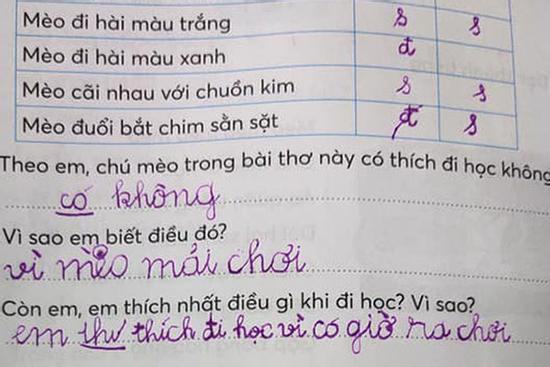 Mèo đi hài màu trắng s s
Mèo đi hài màu xanh đ
Mèo cãi nhau với chuồn kim s s
Mèo đuổi bắt chim sằn sặt đ s
Theo em, chú mèo trong bài thơ này có thích đi học không
có không
Vì sao em biết điều đó?
vì mèo mải chơi
Còn em, em thích nhất điều gì khi đi học? Vì sao?
em thư thích đi học vì có giờ ra chơi